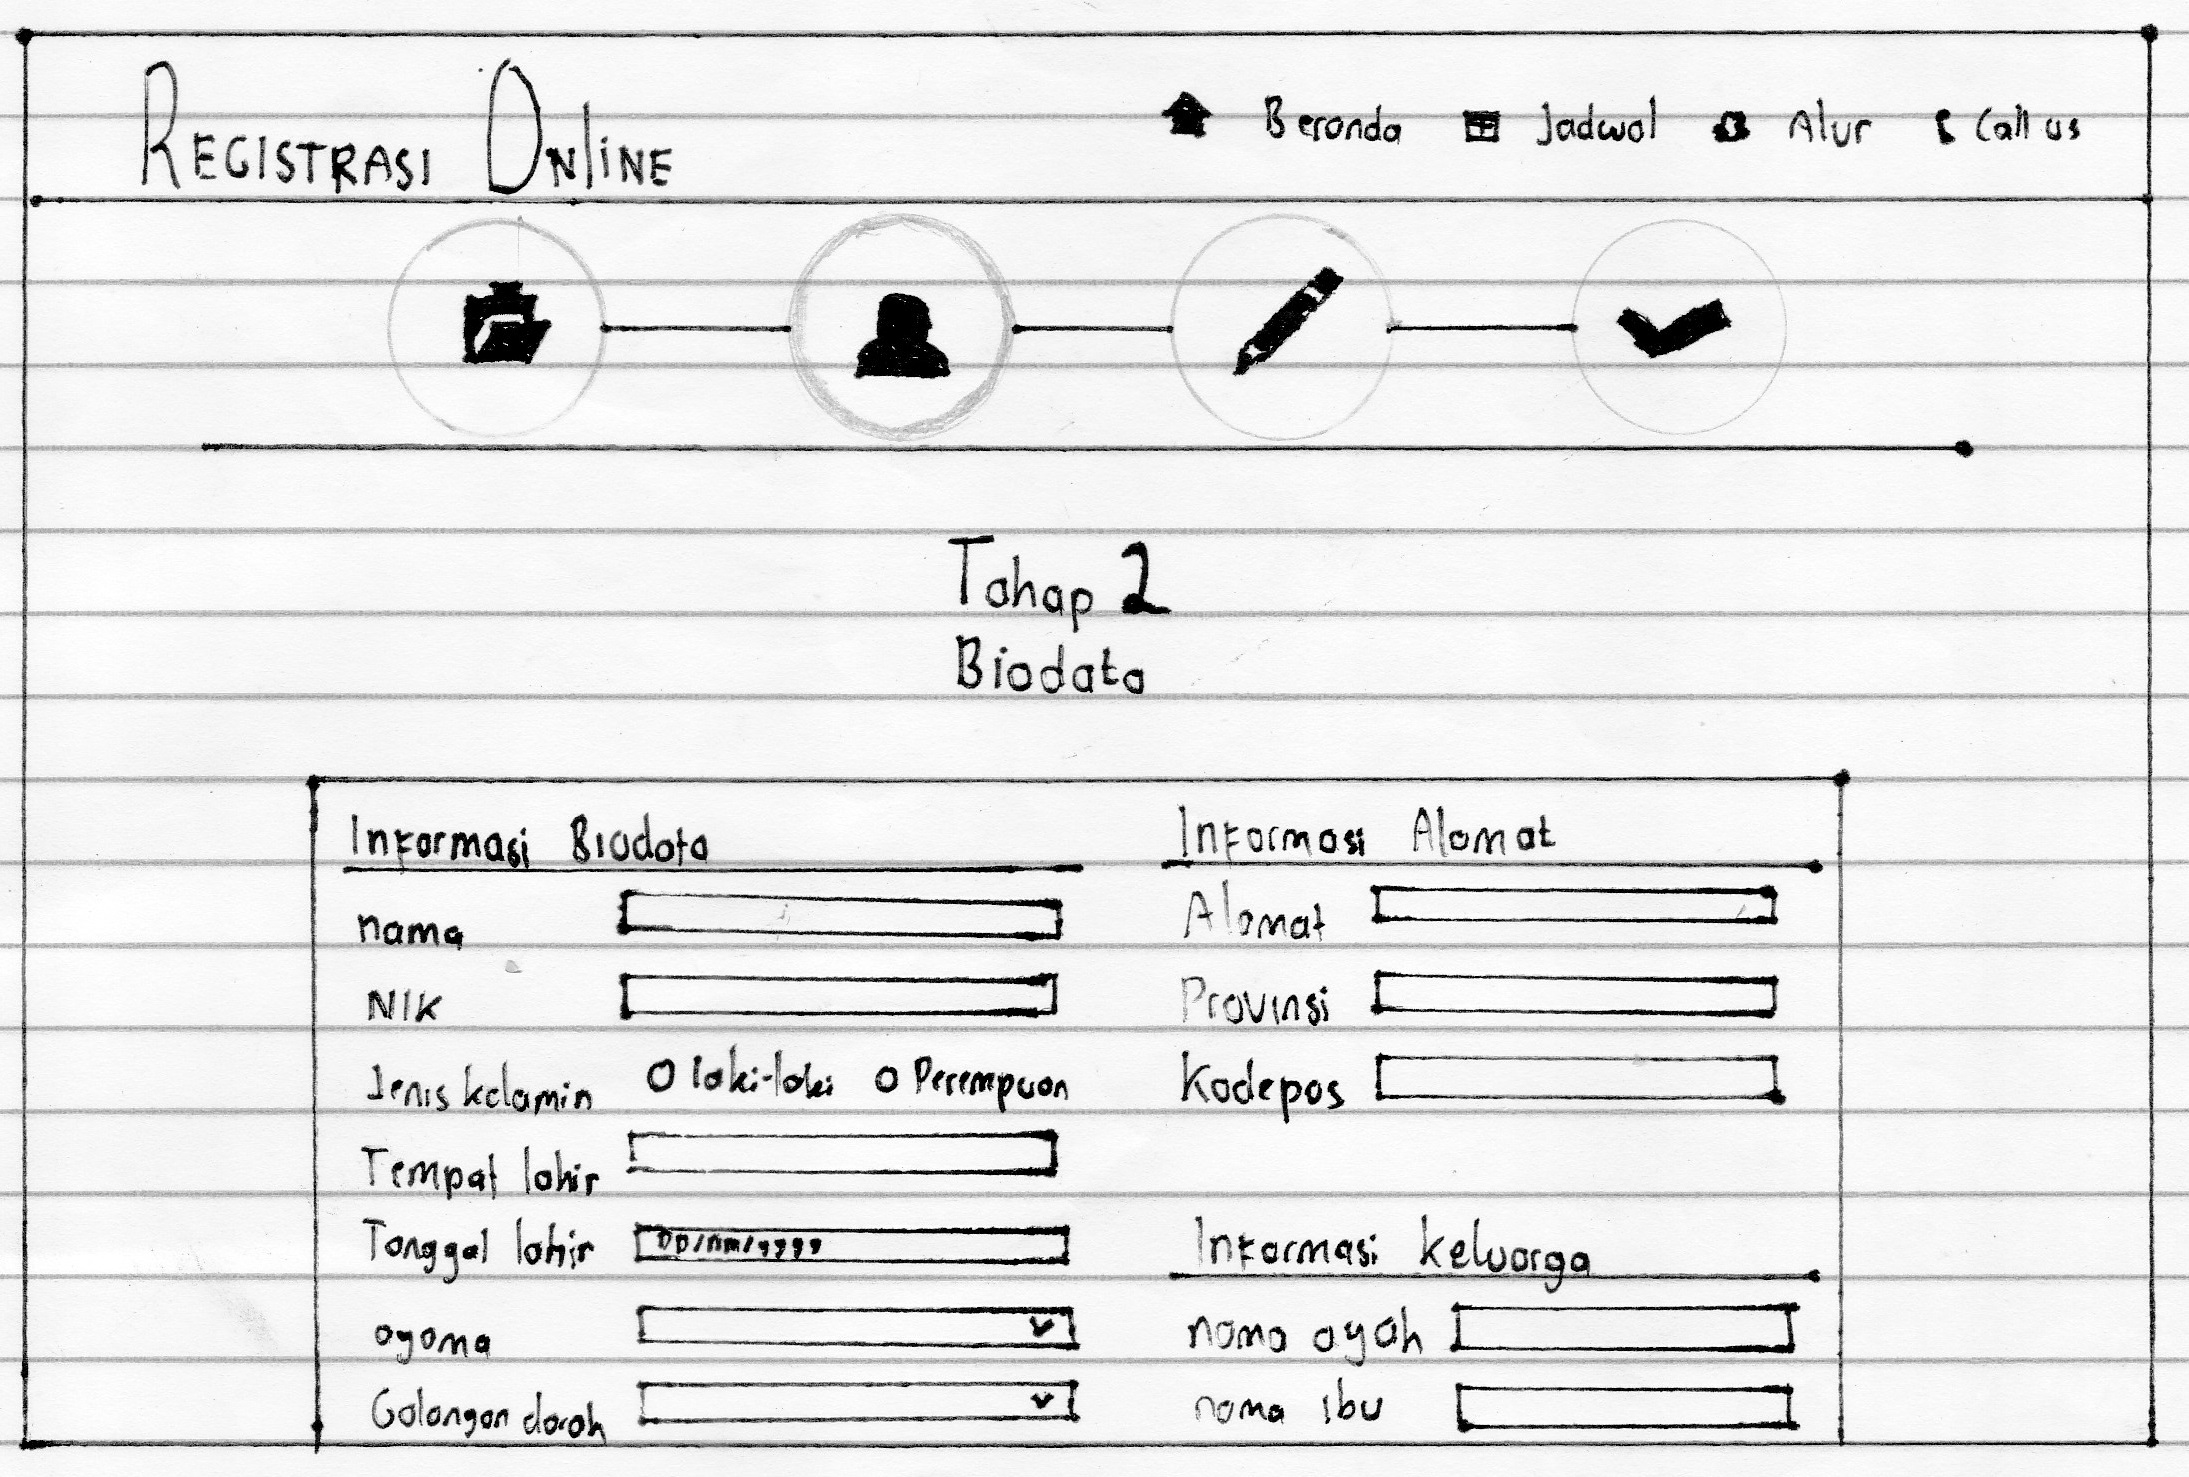 REGISTRASI ONLINE
Beranda Jadwal Alur Call us
Tahap 2
Biodata
Informasi Biodata
nama
NIK
Jenis kelamin laki-laki Perempuan
Tempat lahir
Tanggal lahir DD/mm/yyyy
agama
Golongan darah
Informasi Alamat
Alamat
Provinsi
Kodepos
Informasi keluarga
nama ayah
nama ibu